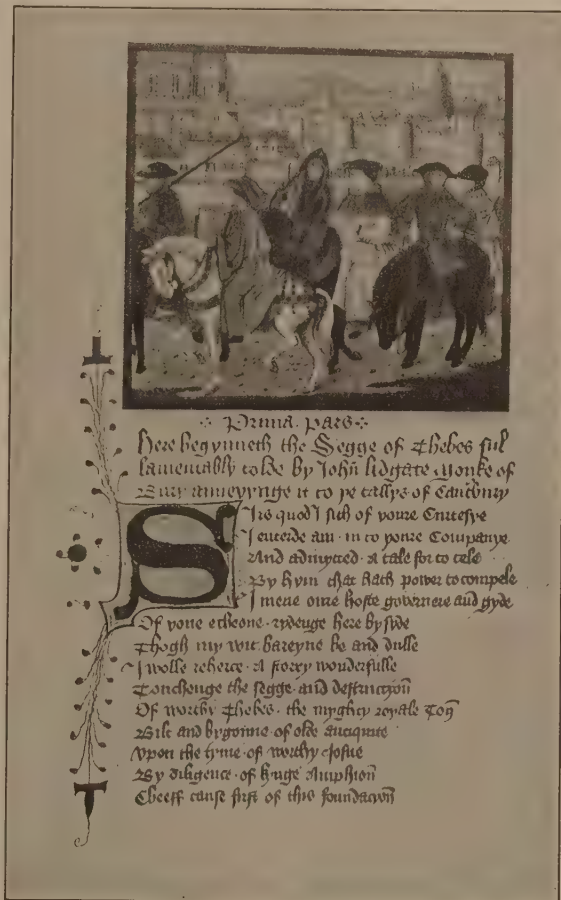 Prima . pars
Here begynneth the Segge of Thebes ful
lamentably tolde by John lidgate Monke of
Bury anneyynge it to þe tallys of Cauntbury
Sirs quod I sith of youre Curtesye
I enterde am . in to youre Companye
And admytted . A tale for to tele
By hym that hath power to compele
I mene oure hoste governere and gyde
Of yone echeone . rydenge here by syde
Thogh my wit bareyne be and dulle
I wolle reherce . A storry wonderfulle
Touchenge the segge . and destructyon
Of worthy Thebes . the myghty royale Ton
Bilt and bygonne . of olde antiquite
Vpon the tyme . of worthy Josue
By diligence . of kynge Amphion
Cheeff cause first of this foundacyon